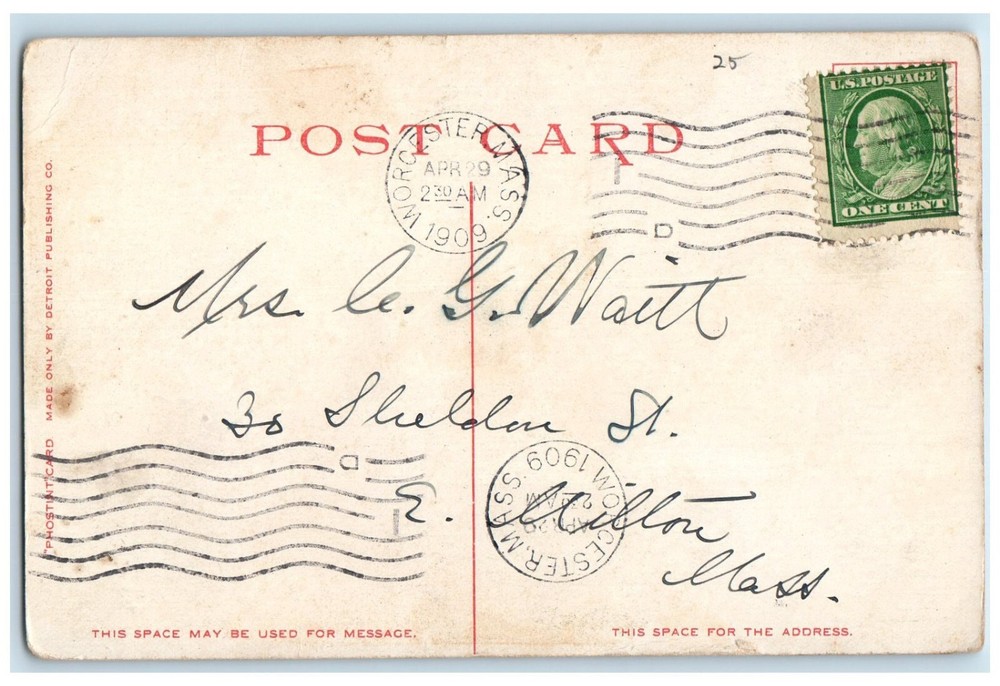 25
U.S. POSTAGE
ONE CENT
POST CARD
WORCESTER, MASS.
APR 29
2 30 AM
1909
D
1
Mrs. C. G. Waitt
30 Sheldon St.
E. Milton
Mass.
D
1
WORCESTER, MASS. 1909
APR 29
2 30 AM
"PHOSTINT" CARD MADE ONLY BY DETROIT PUBLISHING CO.
THIS SPACE MAY BE USED FOR MESSAGE.
THIS SPACE FOR THE ADDRESS.